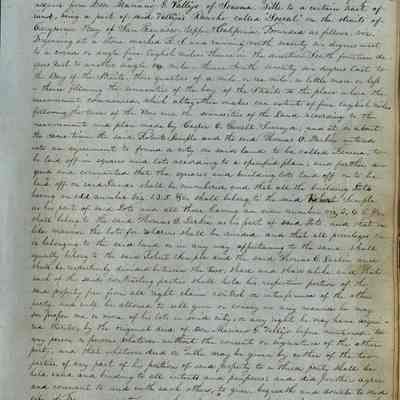 from Don Mariano G. Vallejo of Sonoma Title to a certain tract of
land, being a part of said Vallejo's Rancho called "Soscol" on the straits of
Carquinez Bay of San Francisco Upper California Bounded as follows, viz.
Beginning at a stone marked A. 1 and running north twenty six degrees west
to a corner or angle five English miles thence in the direction South fourteen de
grees east to another angle mile thence South twenty six degrees East to
the Bay of the Straits, three quarters of a mile or one mile, a little more or less
thence following the sinuosities of the bay of the Straits to the place where the
measurement commences which altogether makes an extent of five English miles
following the shores of the Bay and the sinuosities of the Land according to the
measurement and plan made by Jasper O'Farrell Surveyor, and at or about
the same time the said Robert Semple and the said Thomas O. Larkin entered
into an agreement to found a city on said land to be called Benicia, to
be laid off in squares and lots according to a specified plan; and further a
greed and covenanted that the squares and building lots laid off or to be
laid off on said Lands shall be numbered and that all the building Lots
having an odd number viz 1.3.5. &c. shall belong to the said Robert Semple
as his part of said Lots and that all those having an even number viz 2. 4. 6. &c.
shall belong to the said Thomas O. Larkin as his part of said Lots, and that in
like manner the lots for Wharves shall be divided and that all privileges
in belonging to the said land or in any way appertaining to the same shall
equally belong to the said Robert Semple and the said Thomas O. Larkin and
shall be perfectly divided between the two, share and share alike and that
each of the said contracting parties shall hold his respective portion of the
said property free from all right, claim control or interference of the other
party and will be allowed to sell give or convey in any manner he may
see proper one or more of his lots in said city, or any right he may have acquir-
ed thereby by the original deed of Don Mariano G. Vallejo before mentioned to
any person or persons whatever without the consent or signature of the other
party, and that whatever deed or title may be given by either of the two
parties of any part of his portion of said property to a third party shall be
held valid and binding to all intents and purposes and did further agree
and covenant to and with each other, to give, bequeath and donate to said